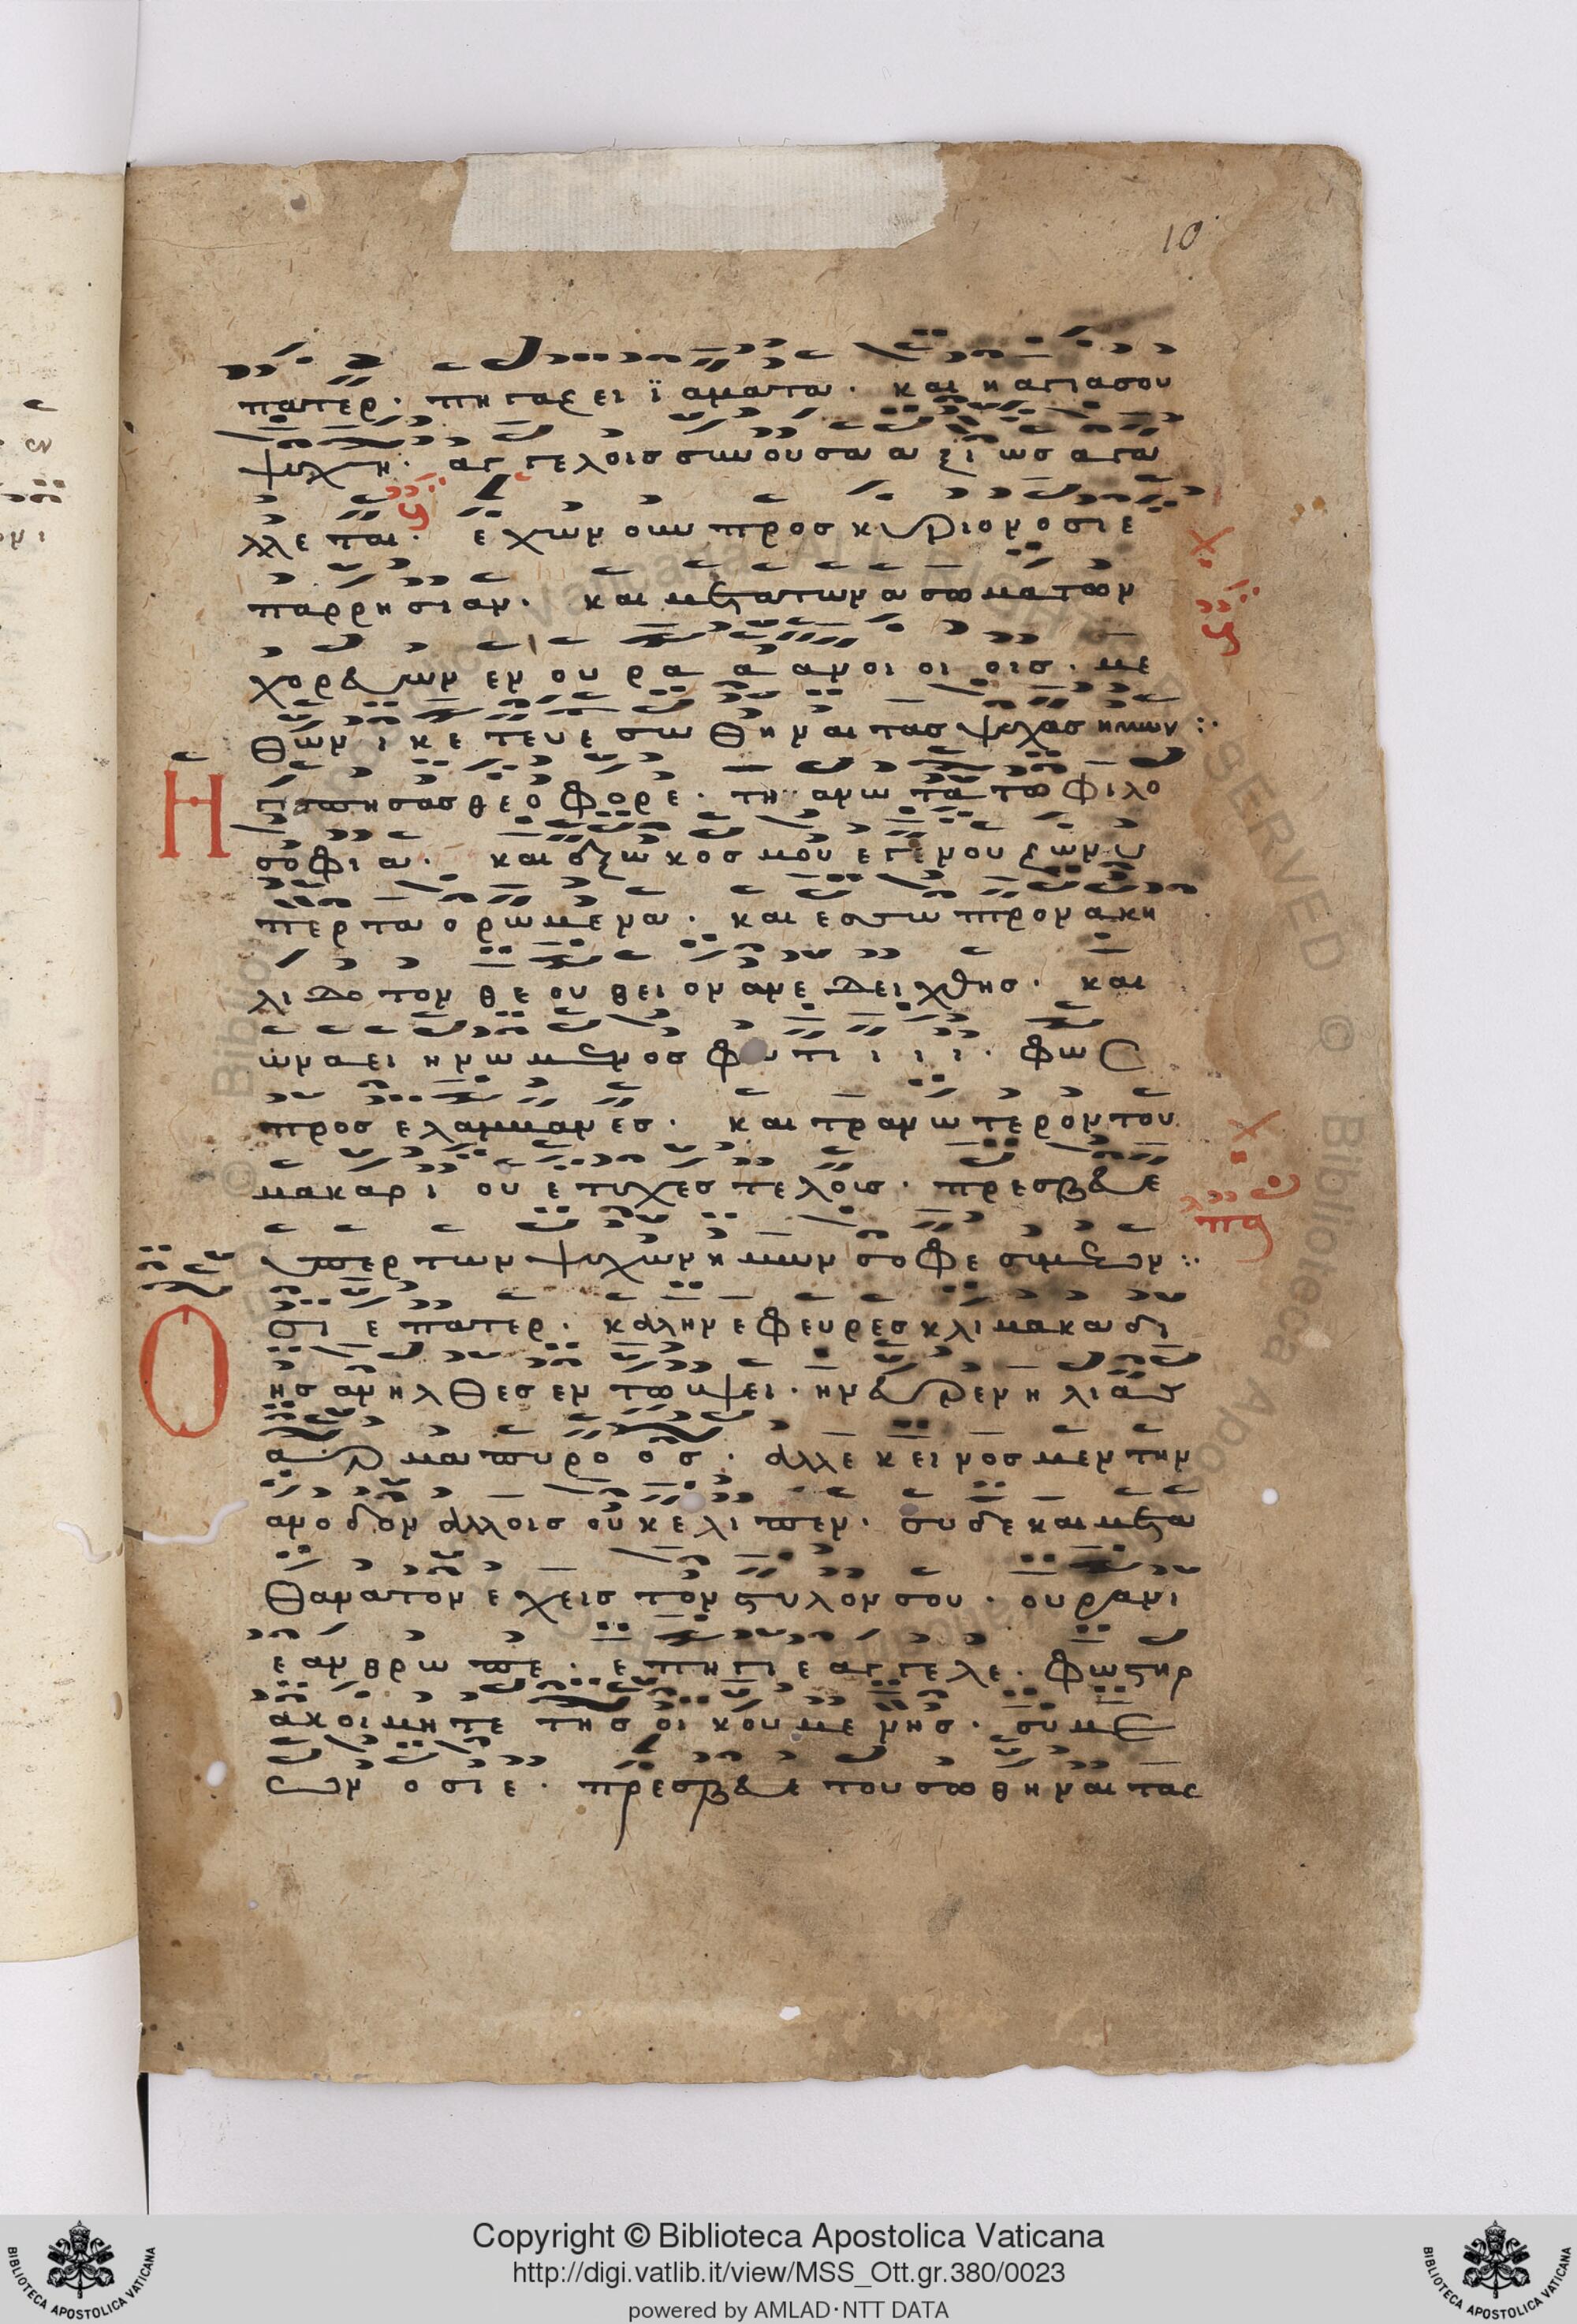 10
πατερ. πηγαζει ϊαματα. και η αγια σου
ψυχη. αγγελοις συνουσα αξιως αγα
λλεται. εχων ουν προς κυριον οσιε
παρρησιαν. και μετα των ασωματων
χορευων εν ουρα α ανοι οι οις. με
θων ικετευε σωθηναι τας ψυχας ημων :.
Η γαπησας θεοφορε. την ανωτατω φιλο
σοφιαν. και εξω κοσμου εγενου ζων υ
περ τα ορωμενα. και εσοπτρον ακη
λιδοτον θεου θειον ανεδειχθης. και
ων αει ηνωμενος φωτι ι ι ι. φως
προσελαμμανες. και τρανωτερον του
μακαριου ετυχες τελους. πρεσβευε
υπερ των ψυχων ημων σοφε συμεων :.
Ο σιε πατερ. καλην εφευρες κλιμακα δι
ης ανηλθες εν τω υψει. ην ευρεν ηλιας
αρμα πυρο ος. αλλ εκεινος μεν την
ανοδον αλλοις ου κελιπεν. συ δε και μετα
θανατον εχεις τον στυλον σου. ουρανι
ε ανθρωπε. επιγιε αγγελε. φωστηρ
ακοιμητε της οικουμενης. συμε
ων οσιε. πρεσβευε του σωθηναι τας
Copyright © Biblioteca Apostolica Vaticana
http://digi.vatlib.it/view/MSS_Ott.gr.380/0023
powered by AMLAD·NTT DATA
BIBLIOTECA APOSTOLICA VATICANA
BIBLIOTECA APOSTOLICA VATICANA